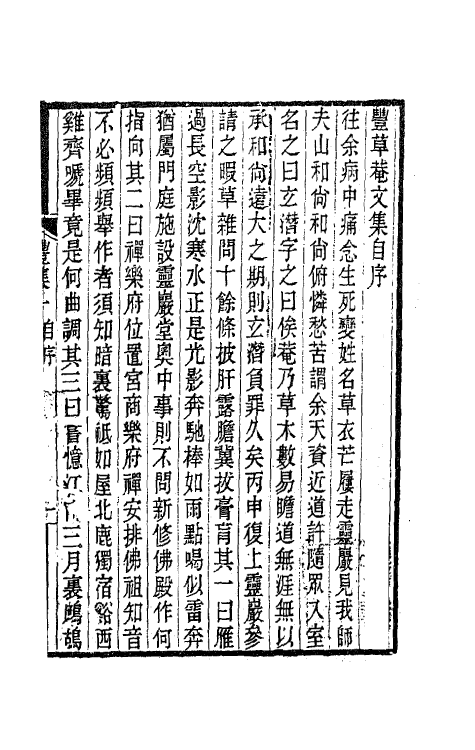 豐草菴文集自序
往余病中痛念生死變姓名草衣芒屨走靈巖見我師
夫山和尚和尚俯憐愁苦謂余天資近道許隨眾入室
名之曰玄潛字之曰俟菴乃草木數易瞻道無涯無以
承和尚遠大之期則玄潛負罪久矣丙申復上靈巖參
請之暇草雜問十餘條披肝露膽冀拔膏肓其一曰雁
過長空影沈寒水正是光影奔馳棒如雨點喝似雷奔
猶屬門庭施設靈巖堂奧中事則不問新修佛殿作何
指向其二曰禪樂府位置宮商樂府禪安排佛祖知音
不必頻頻舉作者須知暗裏驚祇如屋北鹿獨宿谿西
雞齊嗁畢竟是何曲調其三曰長憶江南三月裏鷓鴣
豐集 自序 一